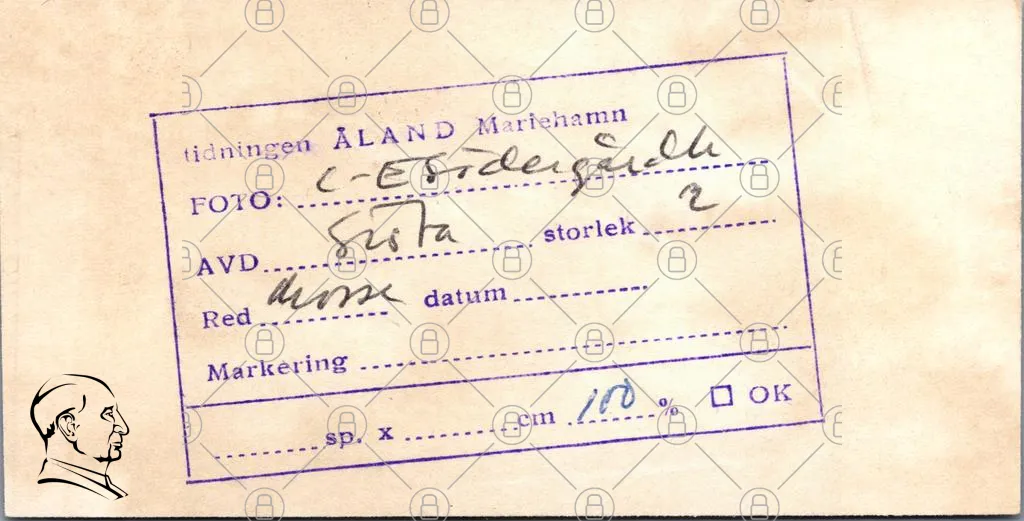 tidningen ÅLAND Mariehamn
FOTO: C-E Södergårdh
AVD Sista storlek 2
Red datum
Markering
sp. x cm 100 % OK